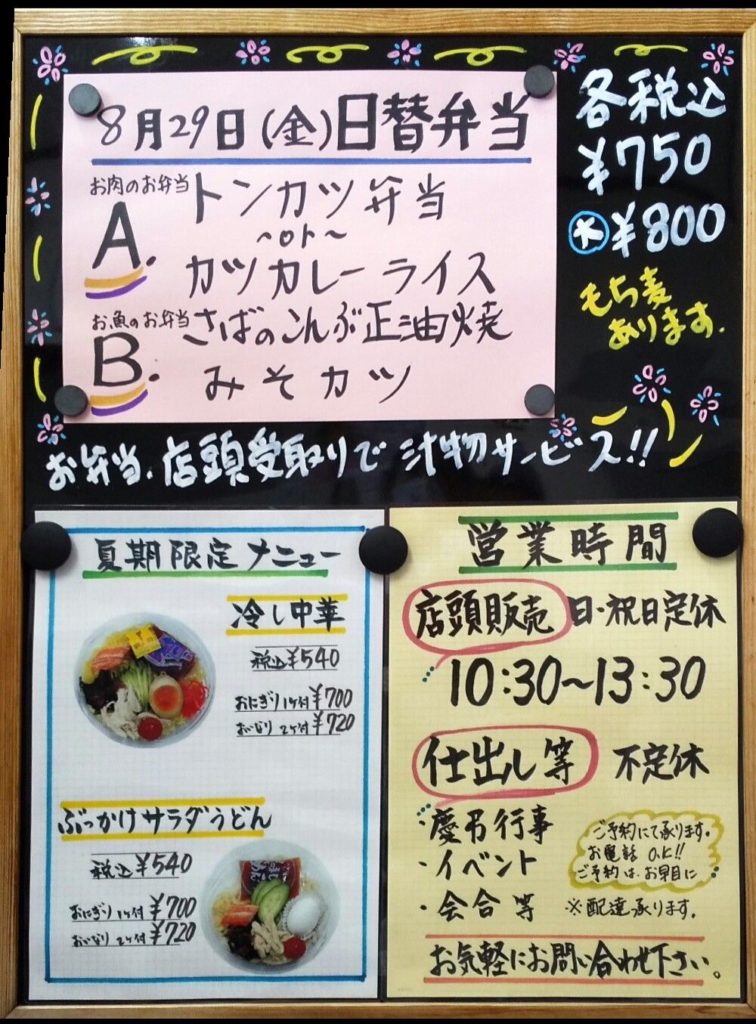 8月29日(金)日替弁当
お肉のお弁当
A.
トンカツ弁当
~or~
カツカレーライス
お魚のお弁当
B.
さばのこんぶ正油焼
みそカツ
各税込
¥750
大 ¥800
もち麦
あります.
お弁当、店頭受取りで汁物サービス!!
夏期限定メニュー
冷し中華
税込¥540
おにぎり1ケ付¥700
おいなり2ケ付¥720
ぶっかけサラダうどん
税込¥540
おにぎり1ケ付¥700
おいなり2ケ付¥720
営業時間
店頭販売 日・祝日定休
10:30~13:30
仕出し等 不定休
・慶弔行事
・イベント
・会合等
ご予約にて承ります。
お電話OK!!
ご予約は、お早目に
※配達承ります。
お気軽にお問い合わせ下さい。